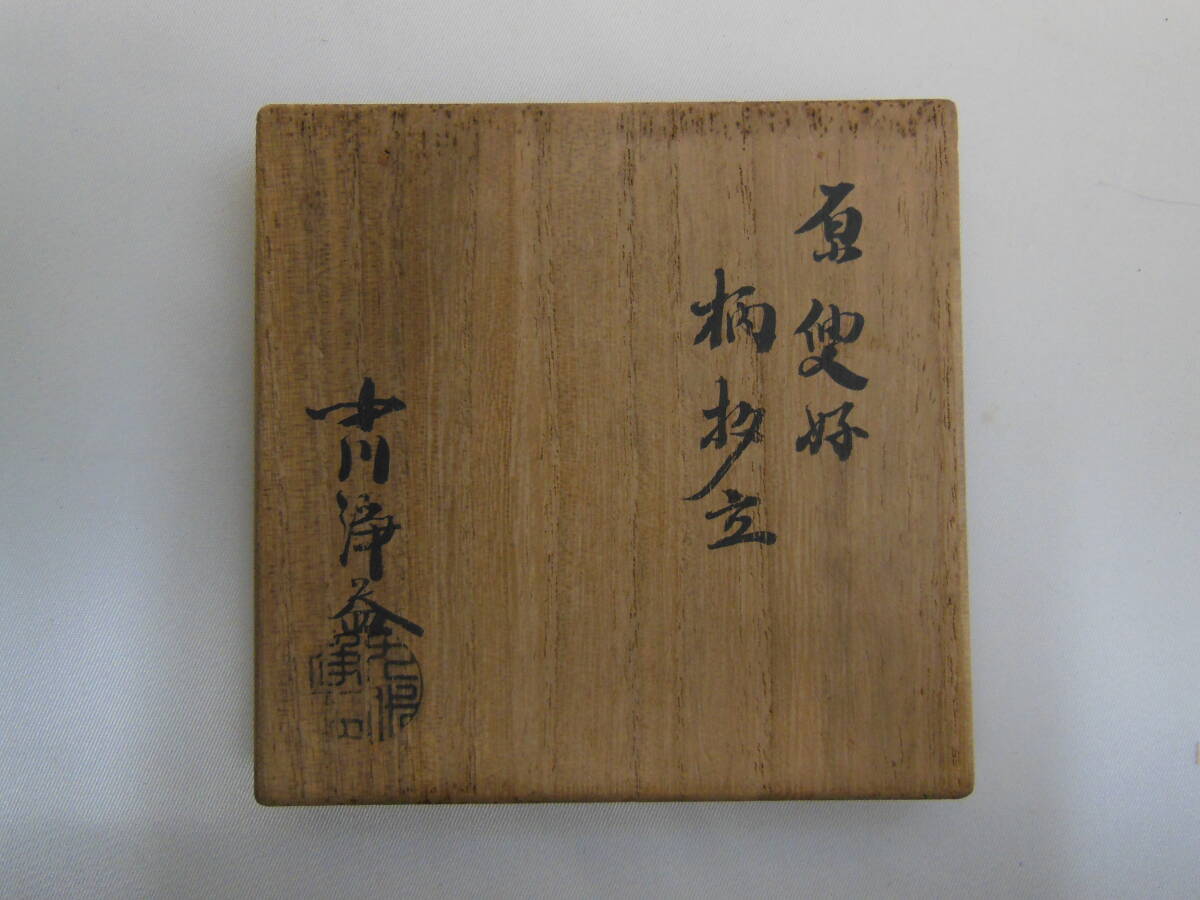 原叟好
柄杓立
中川浄益